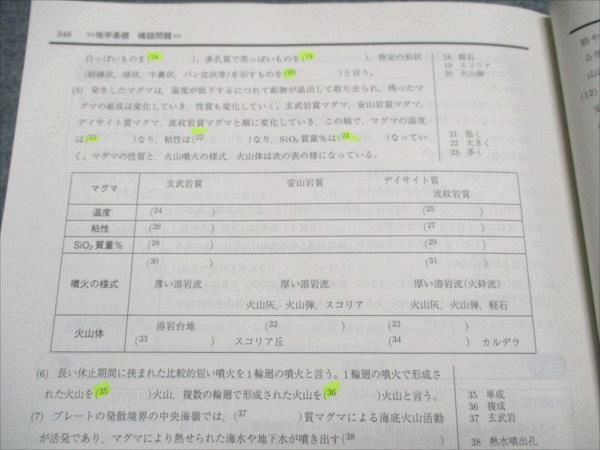 346 ∞∞地学基礎 確認問題∞∞
白っぽいものを(18 )、多孔質で黒っぽいものを(19 )、特定の形状
(紡錘状、球状、牛糞状、パン皮状等)を示すものを(20 )と言う。
18 軽石
19 スコリア
20 火山弾
(5) 発生したマグマは、温度が低下するにつれて鉱物が晶出して取り去られ、残ったマ
グマの組成は変化していき、性質も変化していく。玄武岩質マグマ、安山岩質マグマ、
デイサイト質マグマ、流紋岩質マグマと順に変化していき、この順で、マグマの温度
は(21 )なり、粘性は(22 )なり、SiO₂質量%は(23 )なってい
く。マグマの性質と、火山噴火の様式、火山体は次の表の様になっている。
21 低く
22 大きく
23 多く
マグマ 玄武岩質 安山岩質 デイサイト質
流紋岩質
温度 (24 ) (25 )
粘性 (26 ) (27 )
SiO₂質量% (28 ) (29 )
噴火の様式 (30 ) (31 )
薄い溶岩流 厚い溶岩流 厚い溶岩流(火砕流)
火山灰、火山弾、スコリア 火山灰、火山弾、軽石
火山体 溶岩台地 (32 ) (32 )
(33 ) スコリア丘 (34 ) カルデラ
(6) 長い休止期間に挟まれた比較的短い噴火を1輪廻の噴火と言う。1輪廻の噴火で形成さ
れた火山を(35 )火山、複数の輪廻で形成された火山を(36 )火山と言う。
(7) プレートの発散境界の中央海嶺では、(37 )質マグマによる海底火山活動
が活発であり、マグマにより熱せられた海水や地下水が噴き出す(38
35 単成
36 複成
37 玄武岩
38 熱水噴出孔
(12)